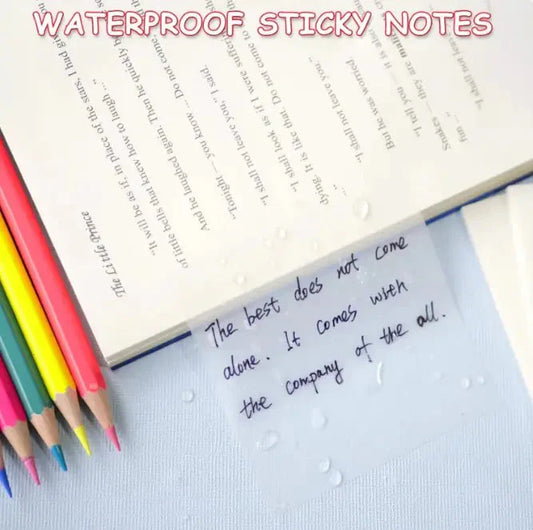 WATERPROOF STICKY NOTES
The Little Prince
"It will be as if, in place of the stars, I had giv
of little bells that knew how to laugh ..."
And he laughed again. Then he quickly be
"Tonight — you know ... Do not come
"I shall not leave you," I said.
"I shall look as if I were sufferi
dying. It is like that. Do not come to
"I shall not leave you."
But he was worried.
"I tell you — it is also
Snakes — they are mali
fun ..."
"I shall not leave
The best does not come
alone. It comes with
the company of the all.